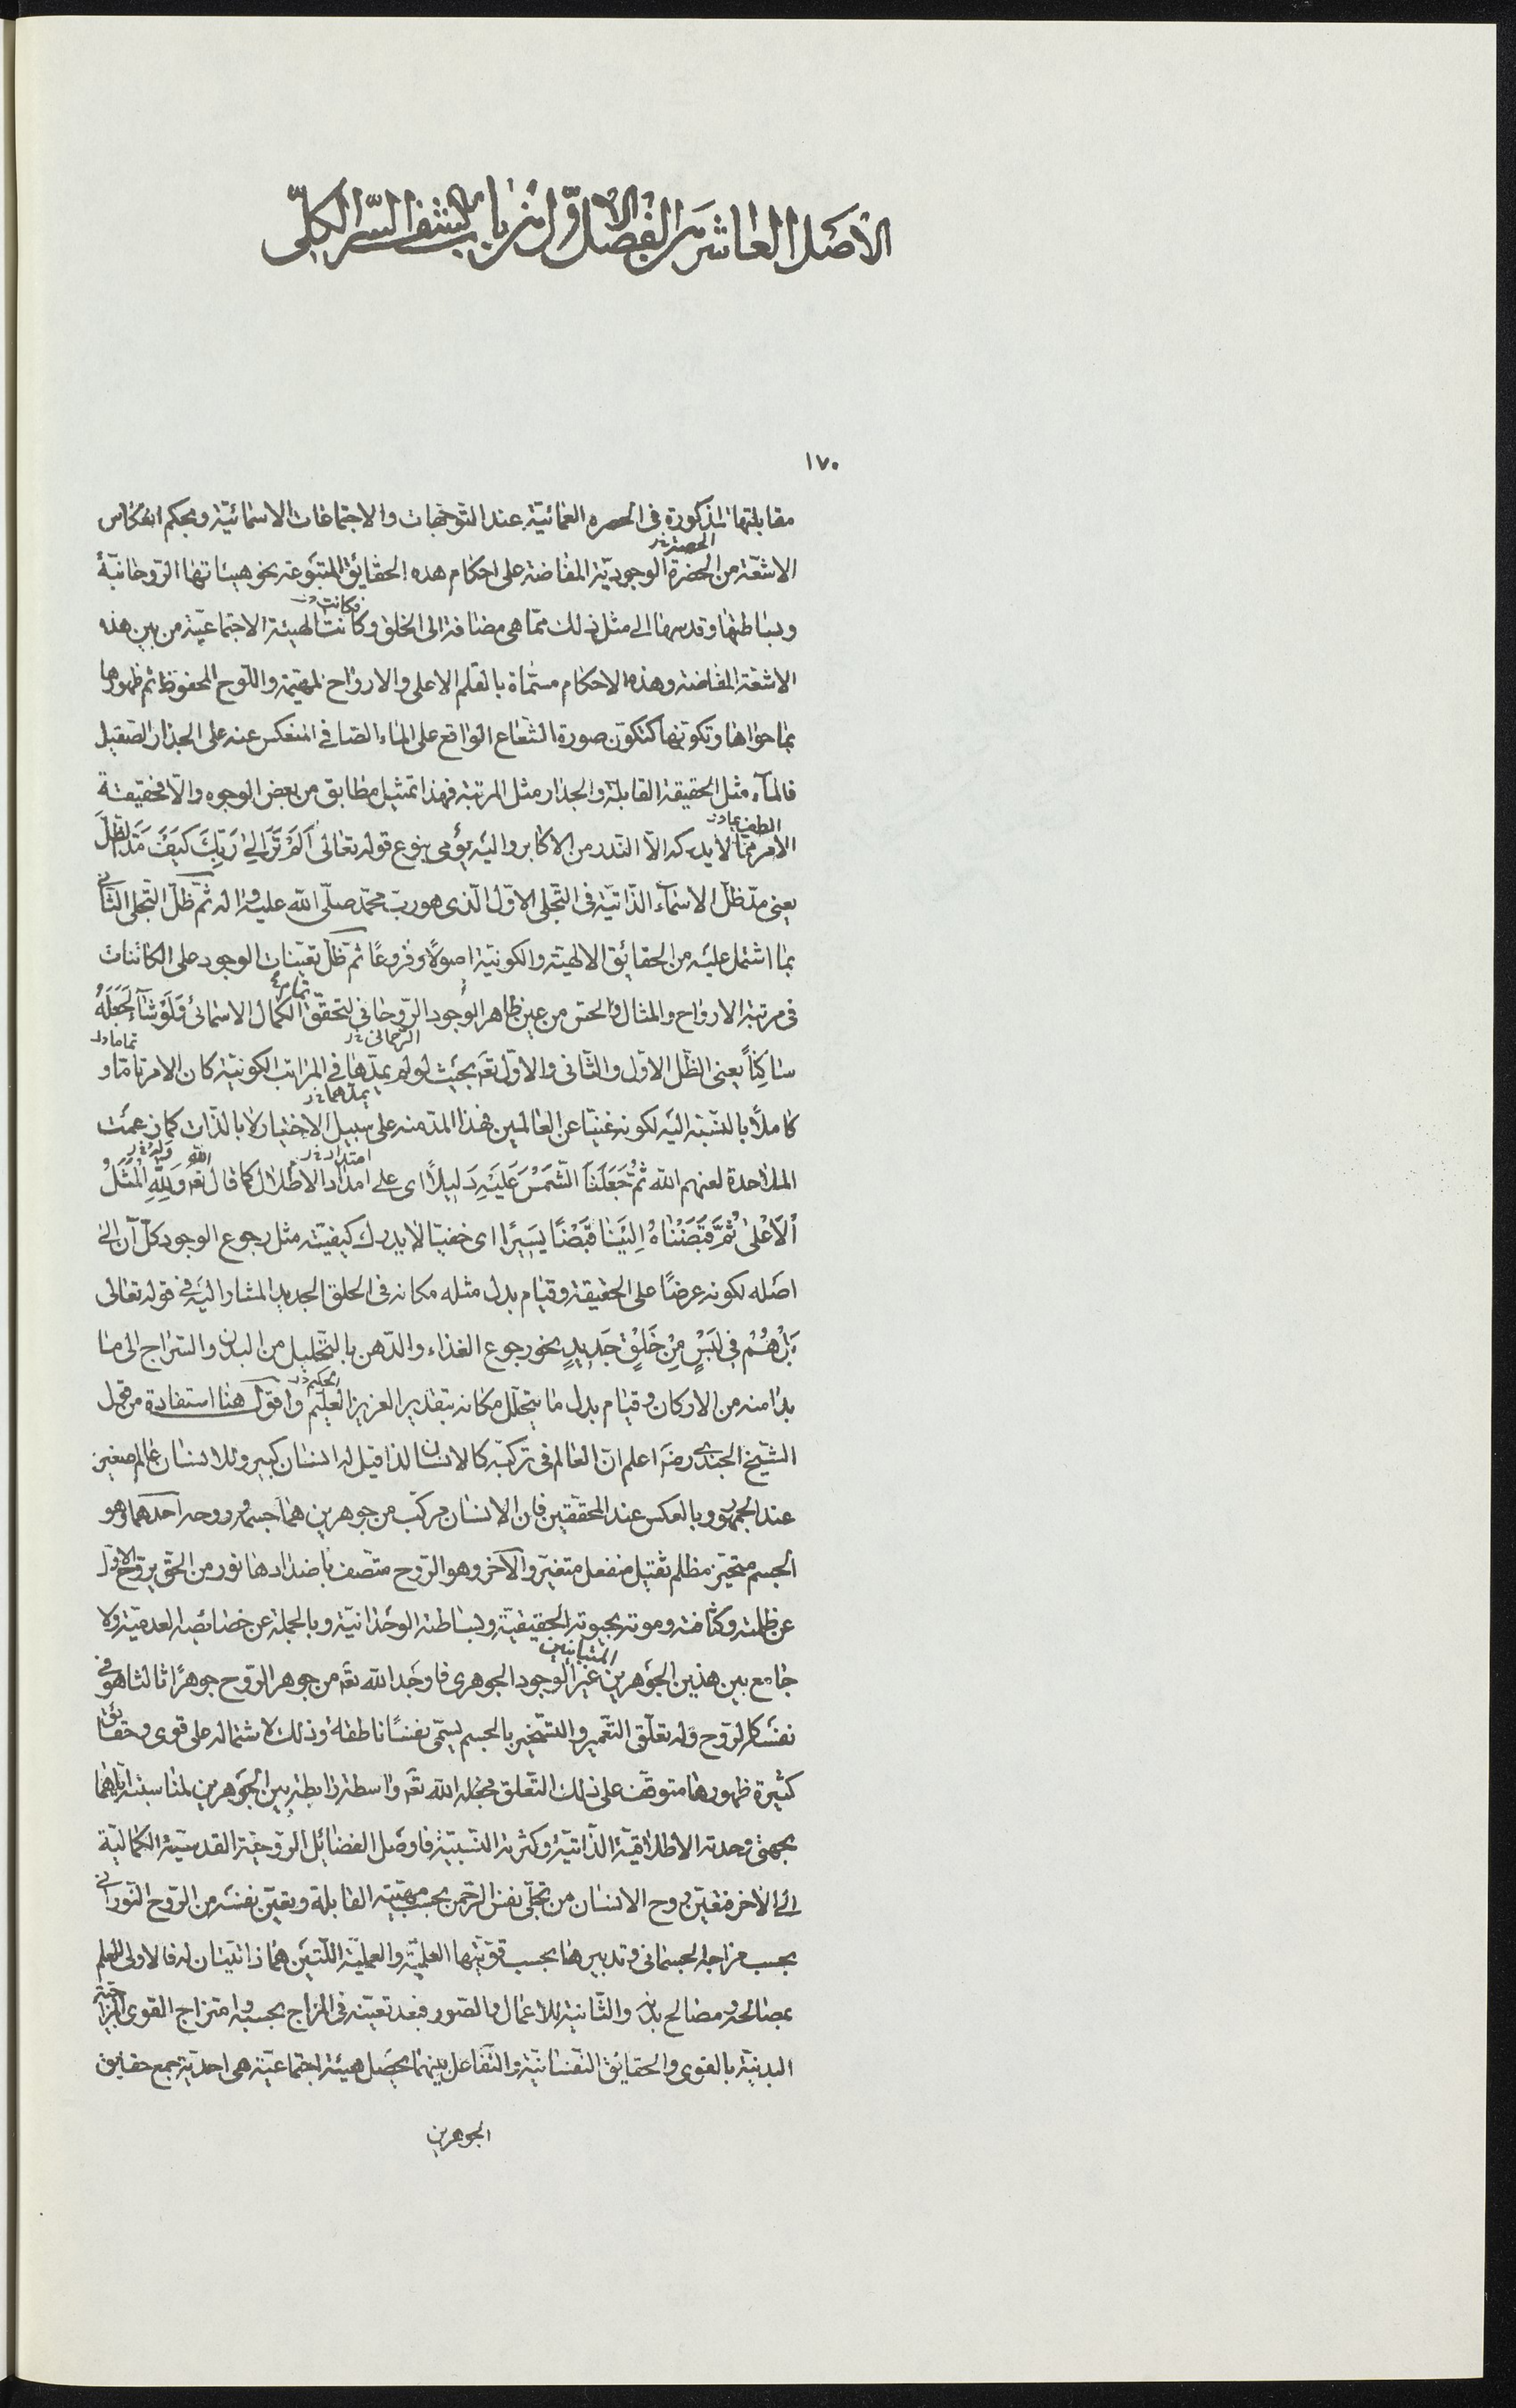 الأصل العاشر من الفصل الاول من باب كشف السّر الكلّى
١٧٠
مقابلتها المذكورة فى الحضرة العمائيّة عند التوجّهات والاجتماعات الاسمائيّة وبحكم انعكاس
الحصة خ ر
الاشعّة من الحضرة الوجوديّة المفاضة على احكام هذه الحقائق المتبوعة نحو هيئاتها الرّوحانيّة
فكانت
وبساطتها وقدسها الى مثل ذلك ممّا هى مضافة الى الخلق وكانت الهيئة الاجتماعيّة من بين هذه
الاشعّة المفاضة وهذه الاحكام مسمّاة بالقلم الاعلى والارواح المهيّمة واللّوح المحفوظ ثم ظهورها
بما حواها وتكوّنها كتكوّن صورة الشّعاع الواقع على الماء الصّافى المنعكس عنه على الجدار الصّقيل
فالمآء مثل الحقيقة القابلة والجدار مثل المرتبة فهذا تمثيل مطابق من بعض الوجوه والّا فحقيقة
الامر ممّا لا يدركه الّا النّدر من الاكابر واليه يؤمى بنوع قوله تعالى اَلَمْ تَرَ اِلىٰ رَبِّكَ كَيْفَ مَدَّ الظِلَّ
يعنى مدّ ظلّ الاسمآء الذّاتيّة فى التّجلى الاوّل الّذى هو ربّ محمّد صلّى الله عليه واله ثمّ ظلّ التّجلى الثّانى
بما اشتمل عليه من الحقائق الالهيّة والكونيّة اصولًا وفروعًا ثمّ ظلّ تعيّنات الوجود على الكائنات
فى مرتبة الارواح والمثال والحسّ من عين ظاهر الوجود الرّوحانى لتحقّق الكمال الاسمائى وَلَوْ شٰآءَ لَجَعَلَهُ
الرّحمانى خ ر
سٰاكِنًا يعنى الظّل الاوّل والثّانى والاوّل تعه بحيث لو لم يمدّها فى المراتب الكونيّة كان الامر تامّا و
يمدّهما خ ر
كاملًا بالنّسبة اليه لكونه غنيّا عن العالمين فهذا المدّ منه على سبيل الاختيار لا بالذّات كما زعمت
امتداد خ ر
الملاحدة لعنهم الله ثُمَّ جَعَلْنَا الشَّمْسَ عَلَيْهِ دَلِيلاً اى على امداد الاظلال كما قال الله تعه وَلِلّٰهِ الْمَثَلُ
اْلاَعْلىٰ ثُمَّ قَبَضْنٰاهُ اِلَيْنٰا قَبْضًا يَسِيرًا اى خفيّا لا يدرك كيفيّته مثل رجوع الوجود كلّ آن الى
اصله لكونه عرضًا على الحقيقة وقيام بدل مثله مكانه فى الخلق الجديد المشار اليه فى قوله تعالى
بَلْ هُمْ فِى لَبْسٍ مِنْ خَلْقٍ جَدِيدٍ نحو رجوع الغذاء والدّهن بالتّحليل من البدن والسّراج الى ما
الحكيم خ ر
بدا منه من الاركان وقيام بدل ما يتحلّل مكانه بتقدير العزيز العليم واقول هنا استفادة من قول
الشّيخ الجندى رضه اعلم انّ العالم فى تركّبه كالانسان لذا قيل له انسان كبير وللانسان عالم صغير
عند الجمهور وبالعكس عند المحقّقين فان الانسان مركّب من جوهرين هما جسمه وروحه احدهما وهو
الجسم متحيّز مظلم ثقيل منفعل متغيّر والآخر وهو الرّوح متّصف باضدادها نور من الحقّ يروّح الاوّل
عن ظلمته وكثافته وموته بحيوته الحقيقيّة وبساطته الوحدانيّة وبالجملة عن خصائصه العدميّة ولا
المتباينين
جامع بين هذين الجوهرين غير الوجود الجوهرى فاوجد الله تعه من جوهر الرّوح جوهرًا ثالثا هو فى
نفسه كالرّوح وله تعلّق التّعمير والتّسخير بالجسم يسمّى نفسًا ناطقة وذلك لاشتماله على قوى وحقائق
كثيرة ظهورها متوقّف على ذلك التّعلق فجعله الله تعه واسطة رابطة بين الجوهرين لمناسبته ايّاهما
بجهتى وحدته الاطلاقيّة الذّاتيّة وكثرته النّسبيّة فاوصل الفضائل الرّوحيّة القدسيّة الكماليّة
الى الآخر فتعيّن روح الانسان من تجلّى نفس الرّحمن بحسب مهيّته القابلة وبعيّن نفسه من الرّوح النّورانى
بحسب مزاجه الجسمانى وتدبيرها بحسب قوّتيها العلميّة والعمليّة اللّتين هما ذاتيّتان له فالاولى للعلم
بمصالحه ومصالح بدنه والثّانية للاعمال والصّور فبعد تعيّنه فى المزاج بحسبه وامتزاج القوى المزاجيّة
البدنيّة بالقوى والحقايق النّفسانيّة والتّفاعل بينهما يحصل هيئة اجتماعيّة هى احديّة جمع حقايق
الجوهرين